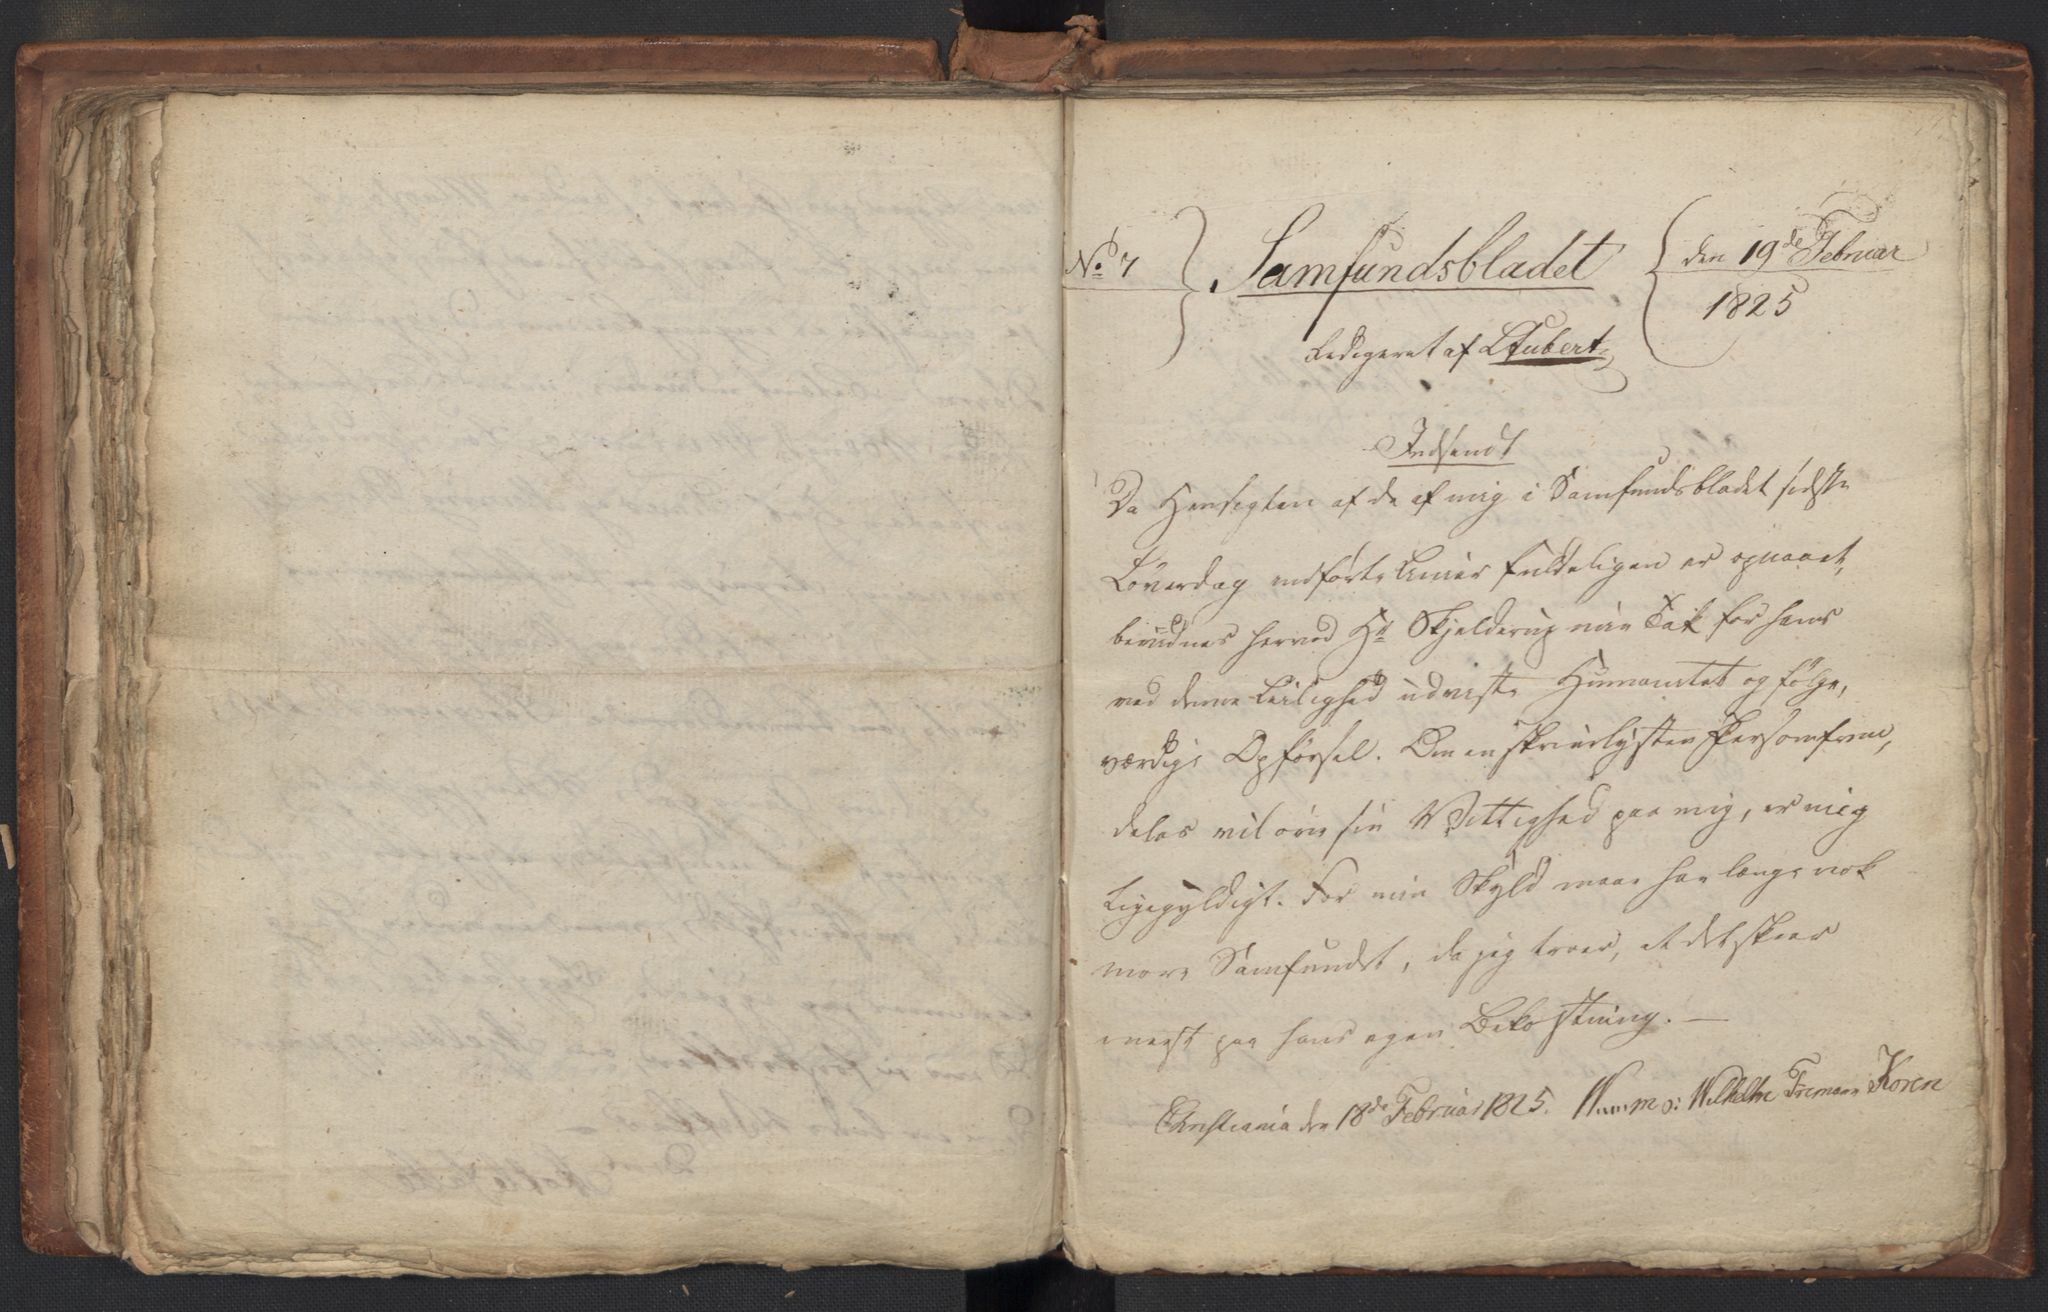 No 7
Samfundsbladet
den 19de Februar
1825
Redigeret af Stubert
Indsendt
Da Hensigten af de af mig i Samfundsbladet sidste
Löverdag indførte Linier fuldeligen er opnaaet,
bevidnes herved Hr Skjelderup min Tak for hans
ved denne Leilighed udviste Humanitet og følge,
værdige Opførsel. Om en skrivelysten Person frem,
deles vil øve sin Vittighed paa mig, er mig
Ligegyldigt. For min Skyld maae han længe nok
more Samfundet, da jeg troer, at det skeer
meest paa hans egen Bekostning. —
Christiania den 18de Februar 1825. Wilhelm Frimann Koren